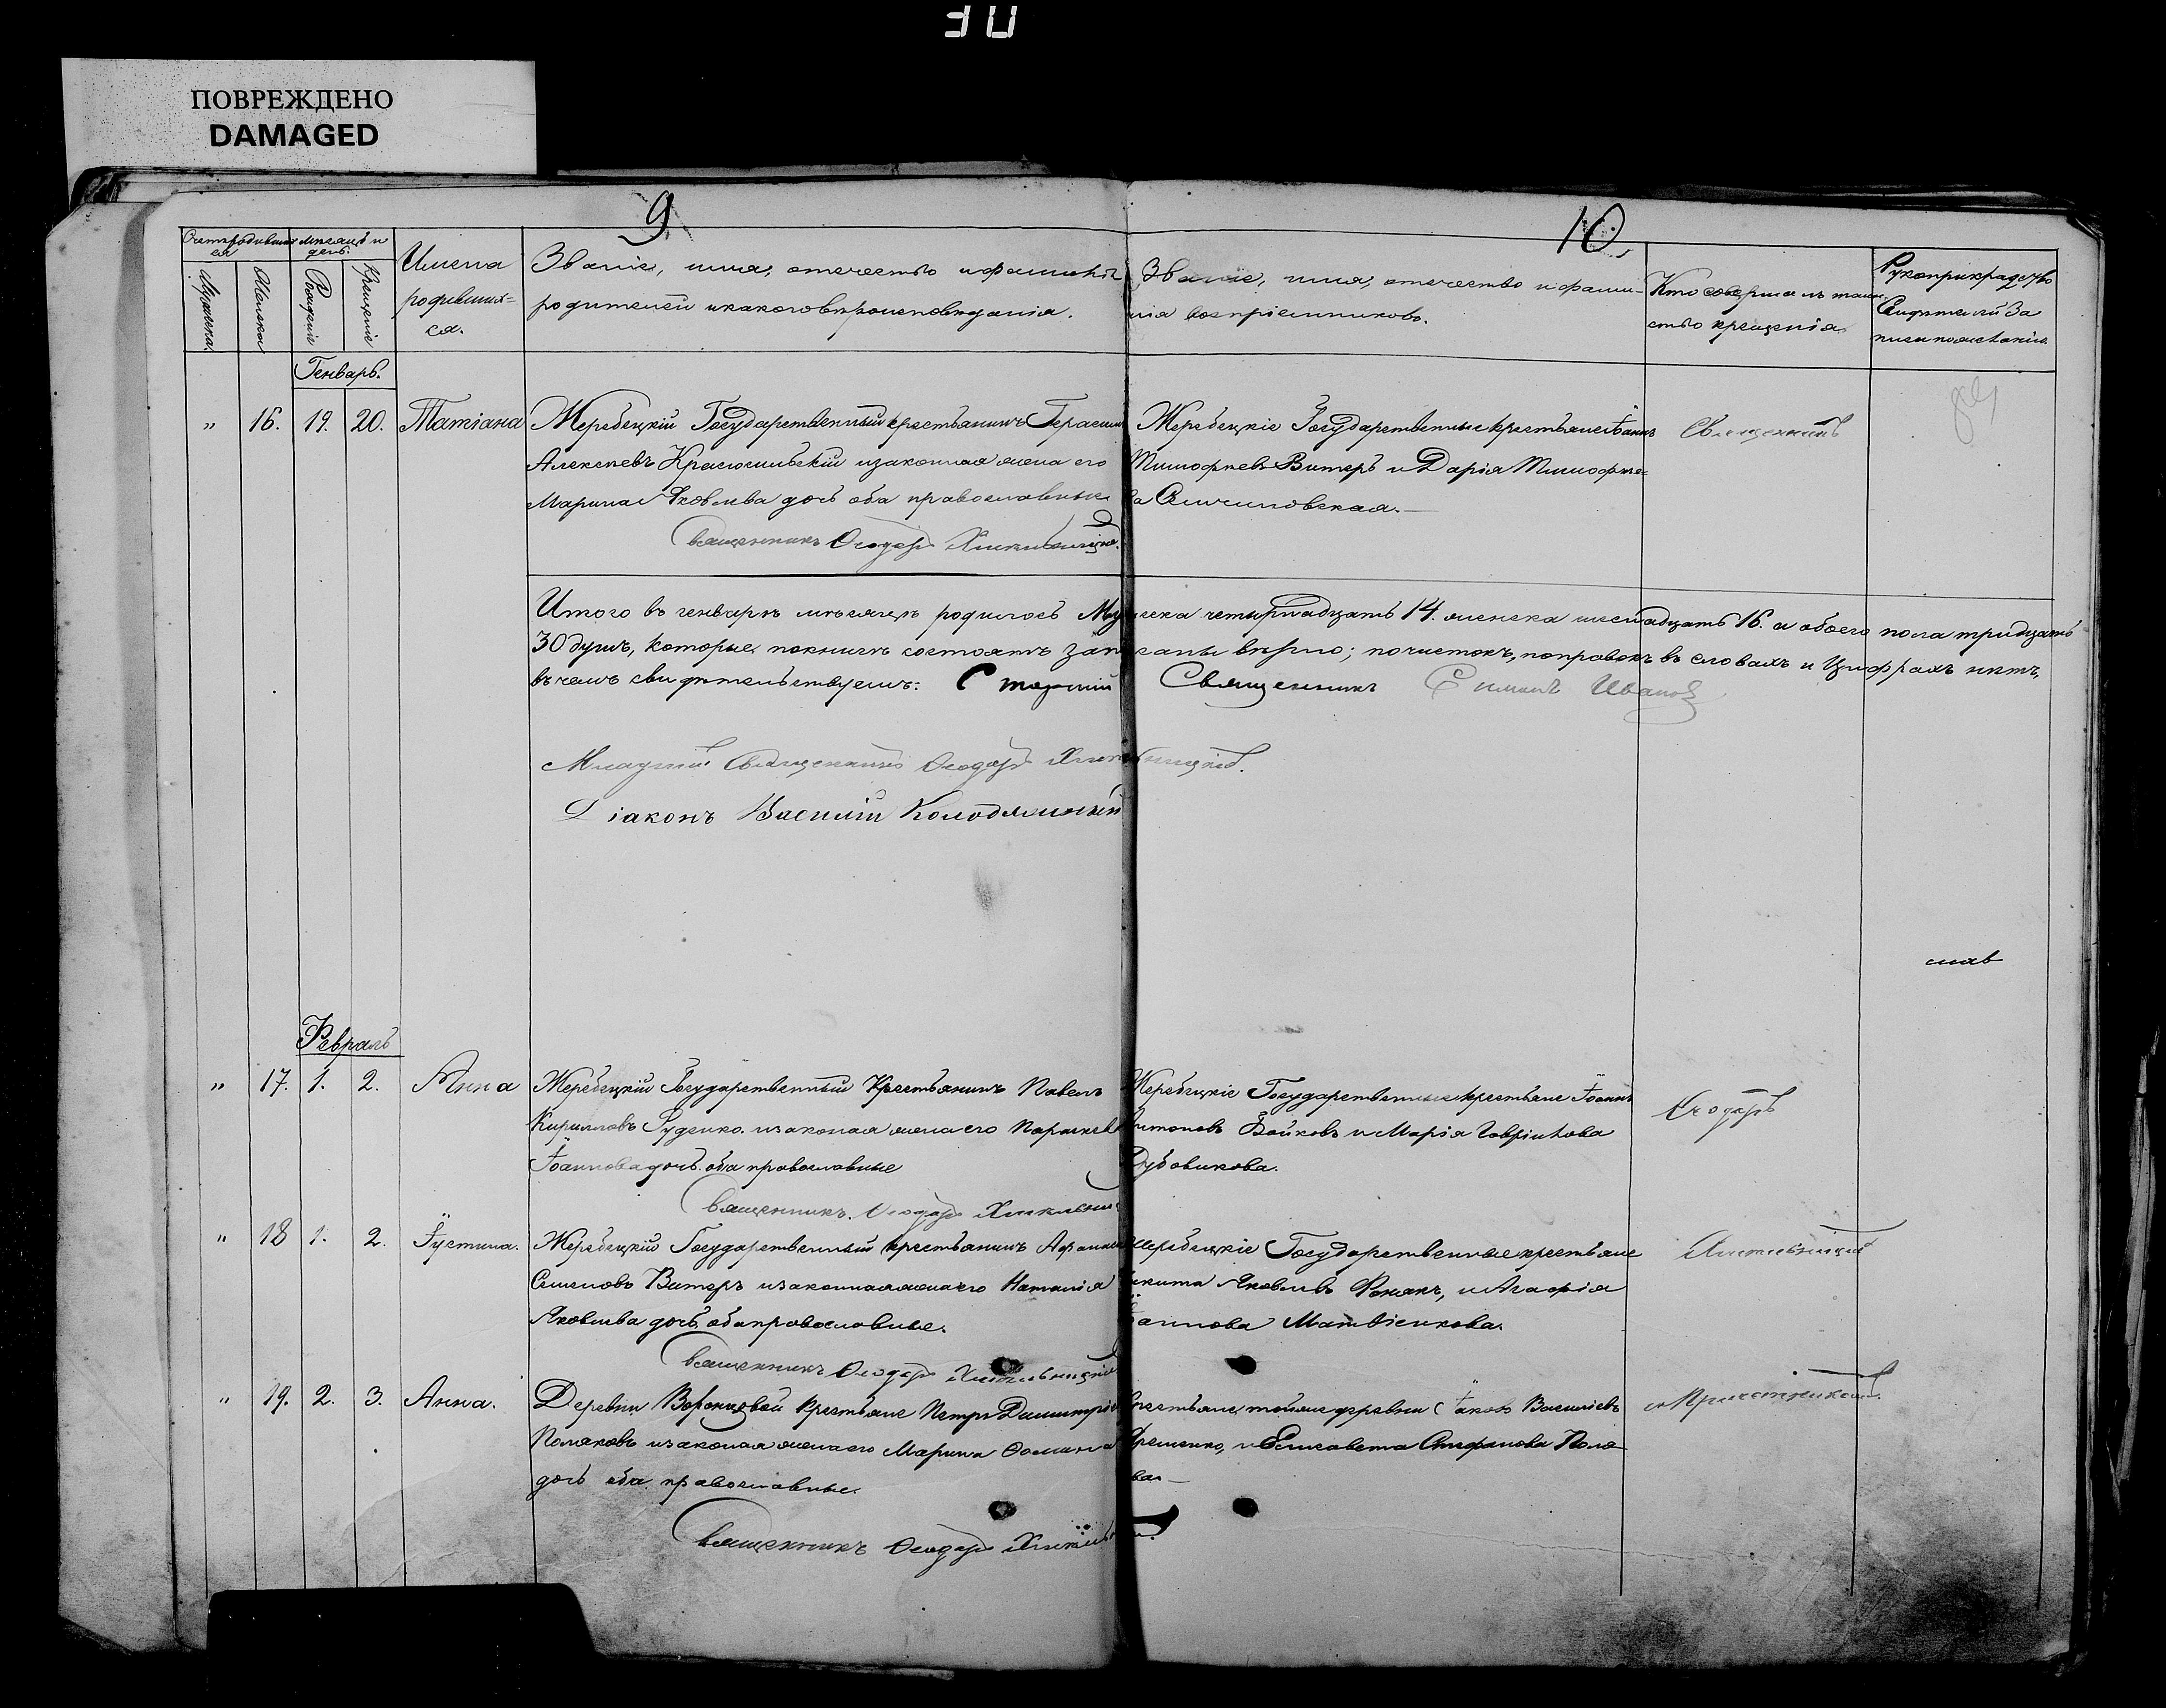 30
ПОВРЕЖДЕНО
DAMAGED
9
10
Счетъ родившихся
мѣсяцъ и день.
Мужеска.
Женска
Рожденія
Крещенія
Имена родившихся.
Званіе, имя, отечество и фамилія
родителей и какого вѣроисповѣданія.
Званіе, имя, отечество и фами-
лія воспріемниковъ.
Кто совершалъ таин-
ство крещенія
Рукоприкладство
Свидѣтелей За
писи по желанію.
Генварь.
" 16. 19. 20. Татіана
Жеребецкій Государственный крестьянинъ Герасимъ
Алексѣевъ и законная жена его
Марина Яковлева дочь оба православные
Священникъ Ѳеодоръ Хмельницкій.
Жеребецкіе Государственные крестьяне Іоаннъ
Тимофѣевъ Витеръ и Дарія Тимофѣе-
ва
Священникъ
Итого въ генварѣ мѣсяцѣ родилось Мужеска четырнадцать 14. женска шеснадцать 16. а обоего пола тридцать
30 душъ, которые по книгѣ состоятъ записаны вѣрно; почистокъ, поправокъ въ словахъ и цифрахъ нѣтъ,
въ чемъ свидѣтельствуемъ: Старшій Священникъ Симеонъ Ивановъ
Младшій Священникъ Ѳеодоръ Хмельницкій.
Діаконъ Василій
Февраль
" 17. 1. 2. Анна
Жеребецкій Государственный Крестьянинъ Павелъ
Кирилловъ Руденко и законая жена его Параскева
Іоаннова дочь оба православные
Священникъ. Ѳеодоръ Хмельниц
Жеребецкіе Государственные крестьяне Іоаннъ
Антоновъ Бойковъ и Марія Гавріилова
Дубовикова.
Ѳеодоръ
" 18 1. 2. Іустина.
Жеребецкій Государственный крестьянинъ Афанасій
Семеновъ Витеръ и законная жена его Наталія
Яковлева дочь, оба православные.
Священникъ Ѳеодоръ Хмельницкій
Жеребецкіе Государственные крестьяне
Никита Яковлевъ и Агафія
Іоаннова Матвіенкова.
Хмельницкій
" 19. 2. 3. Анна.
Деревни Воронцовой Крестьяне Петръ Димитріевъ
Поляковъ и законая жена его Марина Ѳомина
дочь оба православные.
Священникъ Ѳеодоръ Хмельн
Крестьяне той же деревни Іаковъ Василіевъ
и Елисавета Стефанова Поля
ва
съ Причетникомъ.